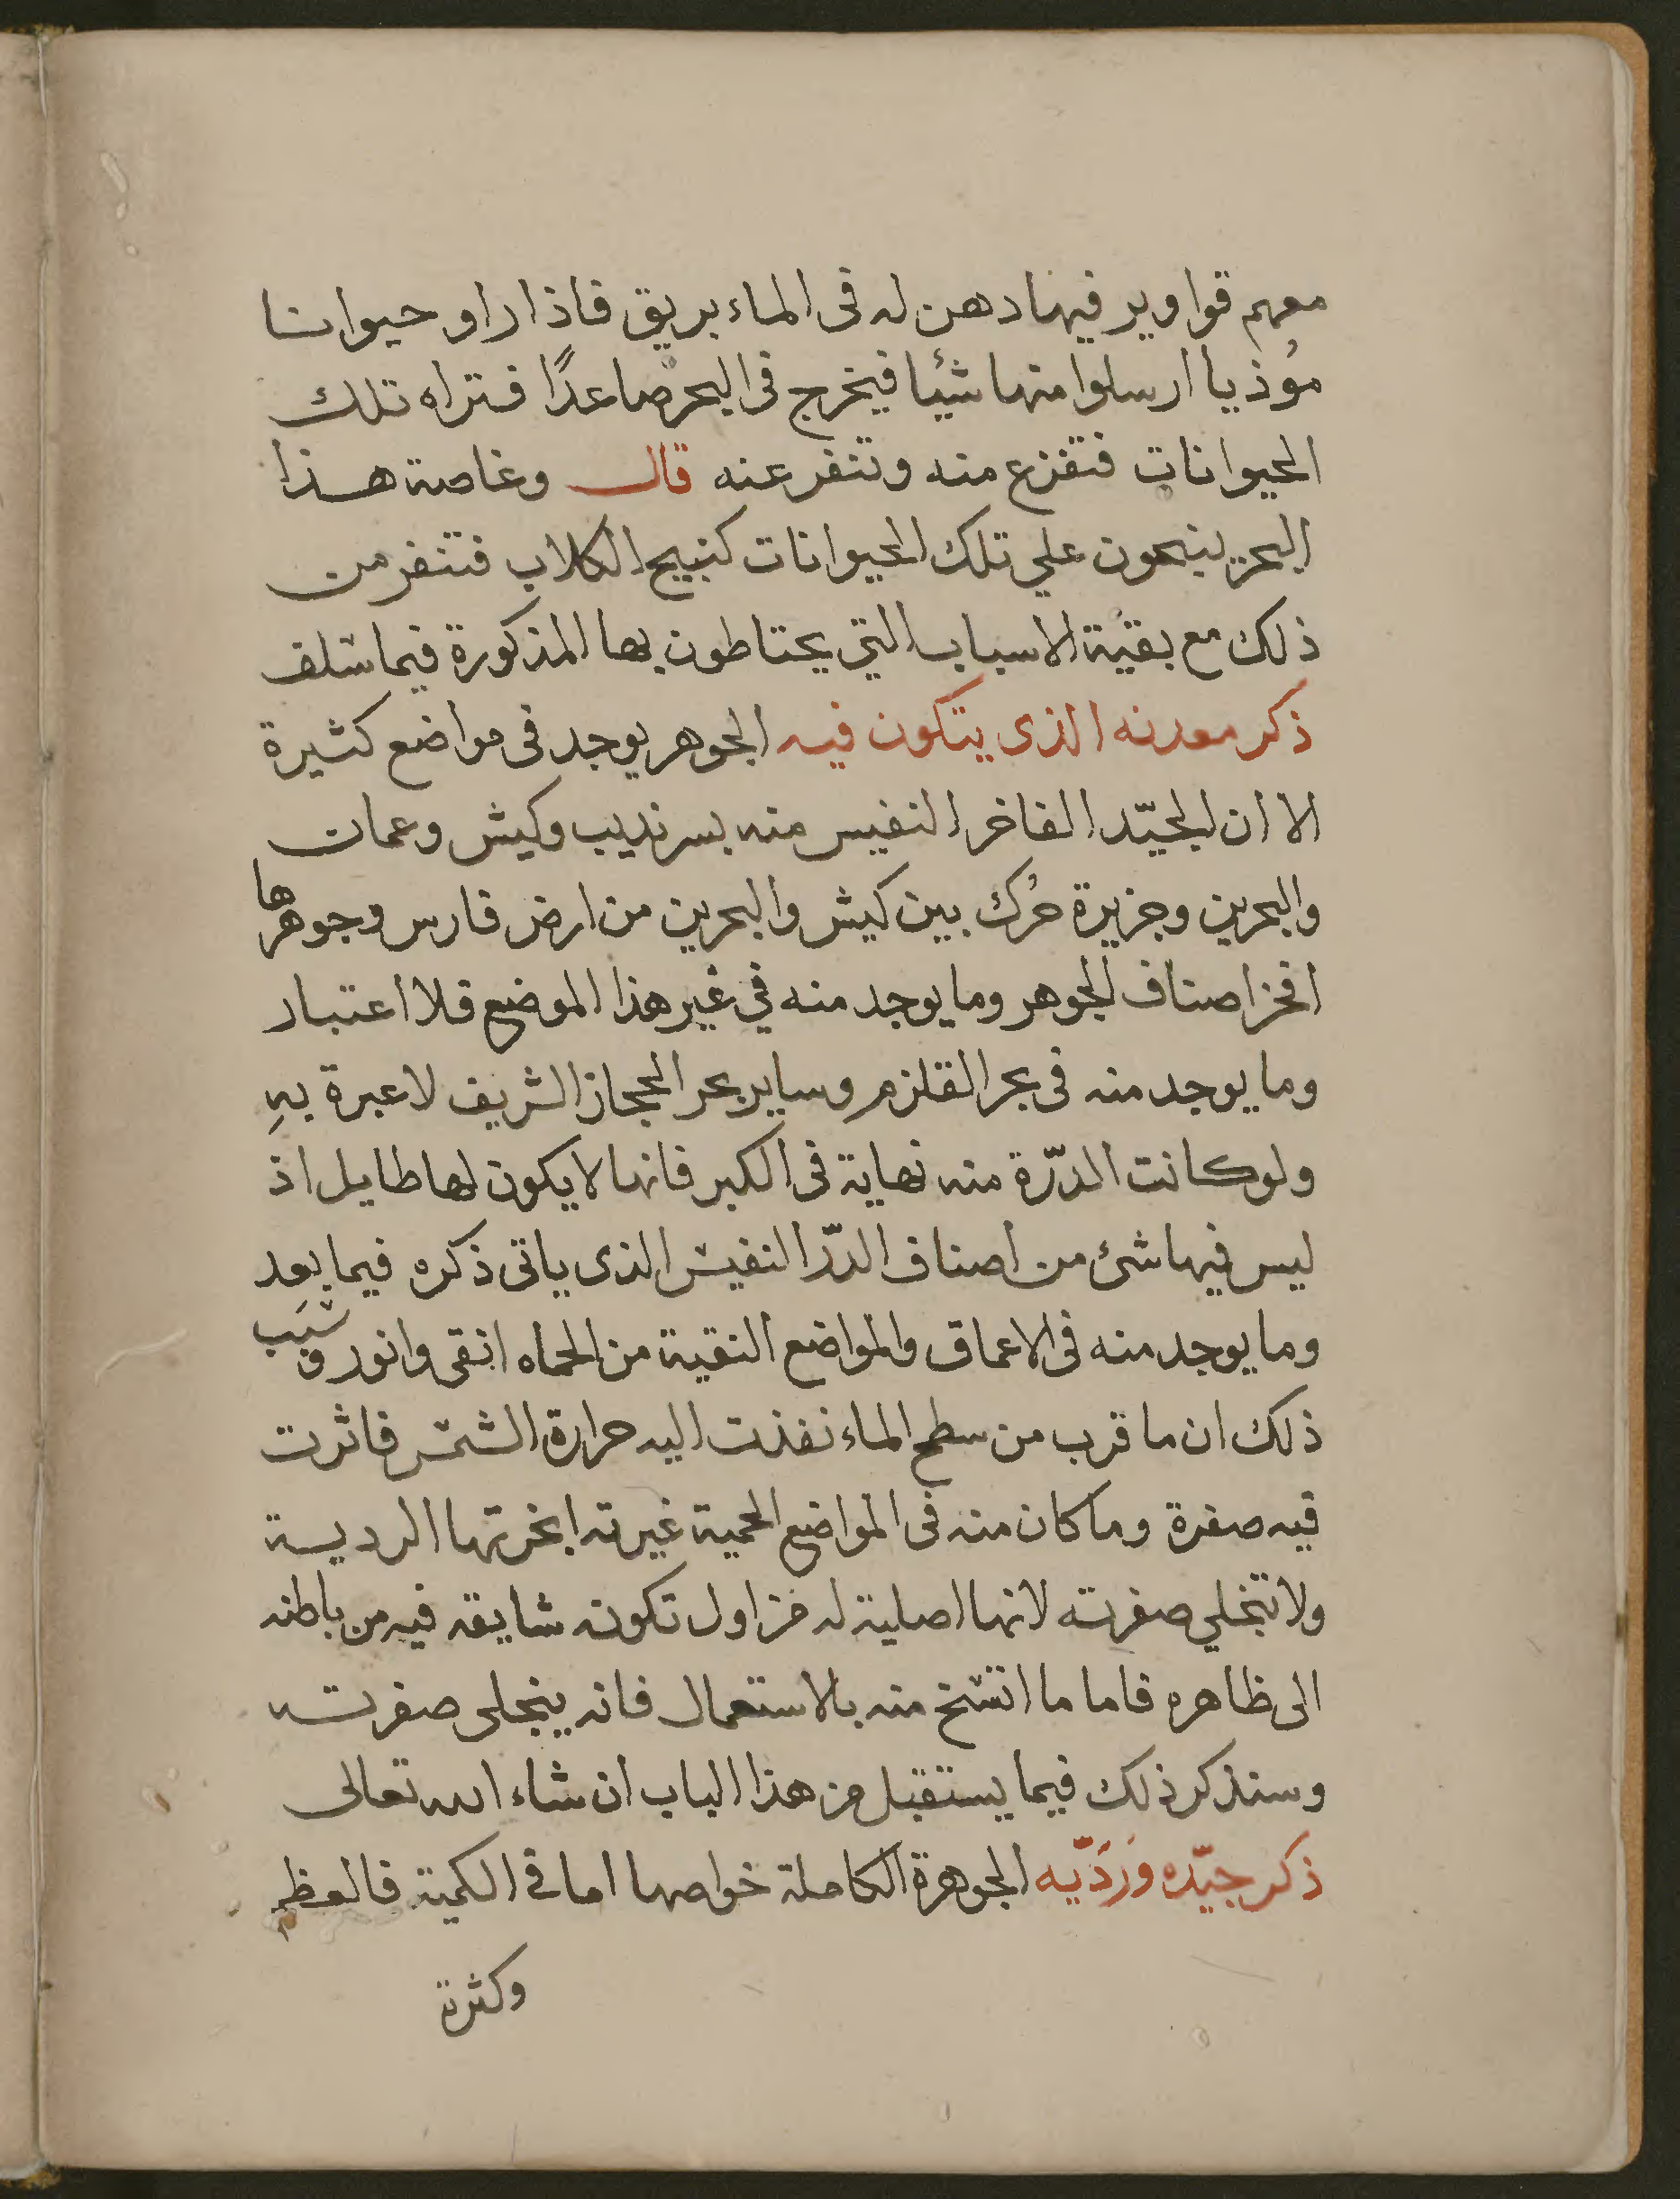 معهم قواوير فيها دهن له فى الماء بريق فاذا راو حيوانا
مُوذيا ارسلوا منها شئيا فيخرج فى البحر صاعدًا فتراه تلك
الحيوانات فتفزع منه وتنفر عنه قال وغاصة هذا
البحر ينبحون علي تلك الحيوانات كنبيح الكلاب فتنفر من
ذلك مع بقية الاسباب التي يحتاطون بها المذكورة فيما سلف
ذكر معدنه الذى يتكون فيه الجوهر يوجد فى مواضع كثيرة
الا ان الجيّد الفاخر النفيس منه بسرنديب وكيش وعمان
والبحرين وجزيرة خُرك بين كيش والبحرين من ارض فارس وجوهرها
افخر اصناف الجوهر وما يوجد منه في غير هذا الموضع فلا اعتبار
وما يوجد منه فى بحر القلزم وساير بحر الحجاز الشريف لا عبرة بهِ
ولو كانت الدرّة منه نهاية فى الكبر فانها لا يكون لها طايل اذ
ليس فيها شئ من اصناف الدرّ النفيس الذى ياتى ذكره فيما بعد
وما يوجد منه فى الاعماق والمواضع النقية من الحماه انقى وانور وسَبَب
ذلك ان ما قرب من سطح الماء نفذت اليه حرارة الشمس فاثرت
فيه صفرة وما كان منه فى المواضع الحمية غيرته ابخرتها الرديـة
ولا تنجلي صفرته لانها اصلية له من اول تكونه شايعه فيه من باطنه
الى ظاهره فاما ما اتسخ منه بالاستعمال فانه ينجلى صفرته
وسنذكر ذلك فيما يستقبل من هذا الباب ان شاء الله تعالى
ذكر جيّده وَرَدّيه الجوهرة الكاملة خواصها اما فى الكمية فالعظم
وكثرة